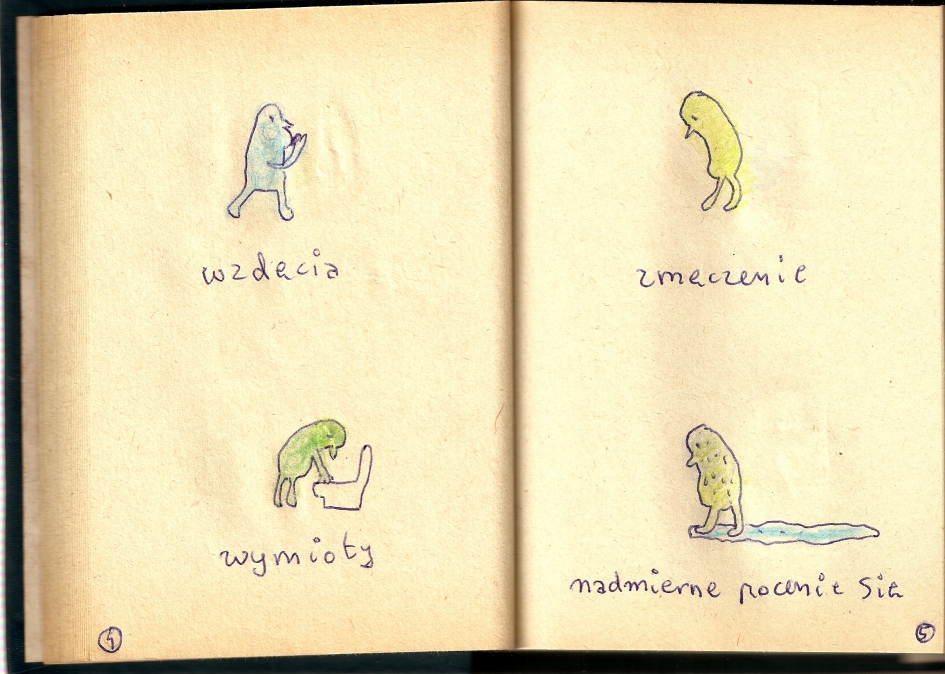 wzdęcia
wymioty
4
zmęczenie
nadmierne pocenie się
5